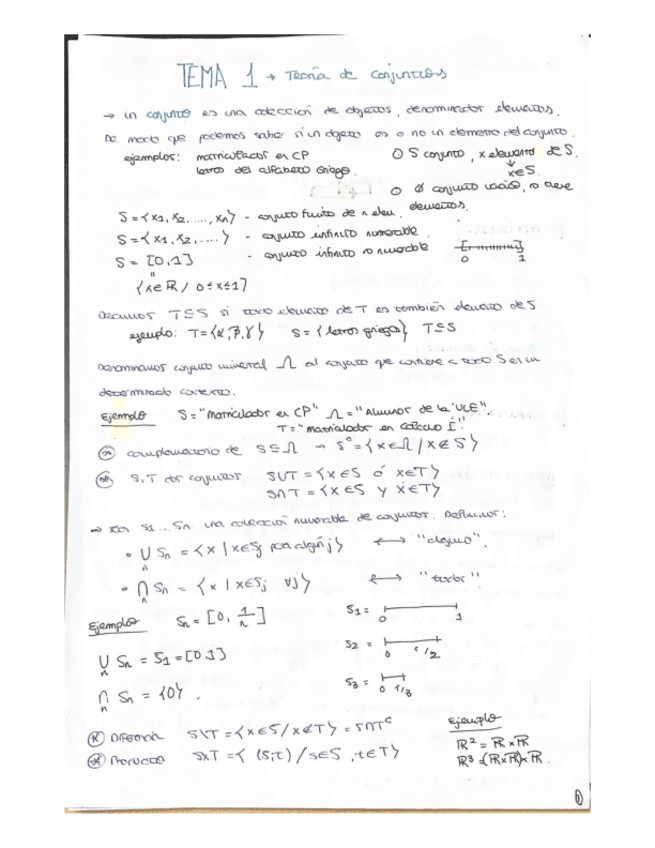 TEMA 1 → Teoría de conjuntos
→ Un conjunto es una colección de objetos, denominados elementos.
De modo que podemos saber si un objeto es o no un elemento del conjunto.
ejemplos: matriculados en CP
letras del alfabeto Griego.
O S conjunto, x elemento de S.
↓
x∈S.
O ∅ conjunto vacío, no tiene
elementos.
S = {x1, x2, ....., xn} - conjunto finito de n elem.
S = {x1, x2, ....} - conjunto infinito numerable
S = [0,1] - conjunto infinito no numerable
0 1
"
{x∈ℝ / 0≤x≤1}
Decimos T⊆S si todo elemento de T es también elemento de S
ejemplo: T={α,β,γ} S = {letras griegas} T⊆S
Denominamos conjunto universal Ω al conjunto que contiene a todo S en un
determinado contexto.
Ejemplo S = "Matriculados en CP" Ω = "Alumnos de la ULE"
T = "matriculados en Cálculo I"
⊛ complementario de S⊆Ω → Sᶜ = {x∈Ω / x∉S}
⊛ S,T dos conjuntos S∪T = {x∈S ó x∈T}
S∩T = {x∈S y x∈T}
→ Sean S1...Sn una colección numerable de conjuntos. Definimos:
• ∪n Sn = {x | x∈Sj para algún j} ↔ "alguno".
• ∩n Sn = {x | x∈Sj ∀j} ↔ "todos"
Ejemplo Sn = [0, 1/n]
S1 = 0 1
S2 = 0 1/2
S3 = 0 1/3
∪n Sn = S1 = [0,1]
∩n Sn = {0}.
⊛ Diferencia S\T = {x∈S / x∉T} = S∩Tᶜ
⊛ Producto SxT = { (s;t) / s∈S , t∈T}
Ejemplo
ℝ² = ℝ x ℝ
ℝ³ = (ℝxℝ)xℝ.
1